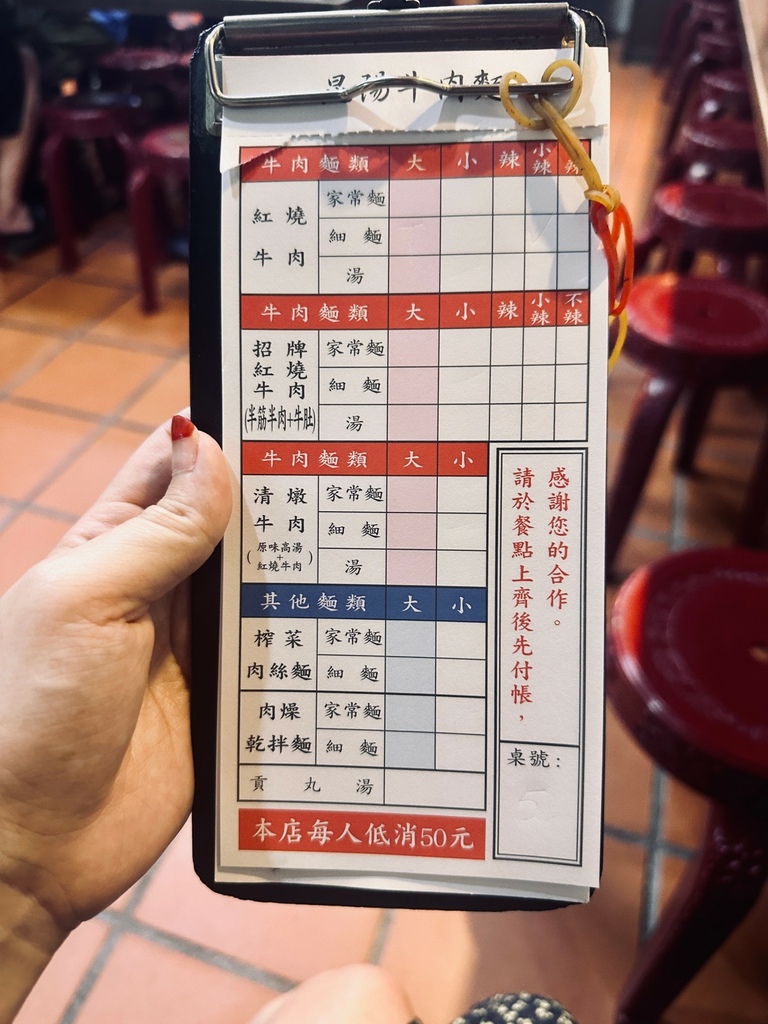 昆陽牛肉麵
牛肉麵類 大 小 辣 小辣 不辣
紅燒牛肉 家常麵
細麵
湯
牛肉麵類 大 小 辣 小辣 不辣
招牌紅燒牛肉(半筋半肉+牛肚) 家常麵
細麵
湯
牛肉麵類 大 小
清燉牛肉(原味高湯+紅燒牛肉) 家常麵
細麵
湯
其他麵類 大 小
榨菜肉絲麵 家常麵
細麵
肉燥乾拌麵 家常麵
細麵
貢丸湯
本店每人低消50元
感謝您的合作。
請於餐點上齊後先付帳，
桌號：